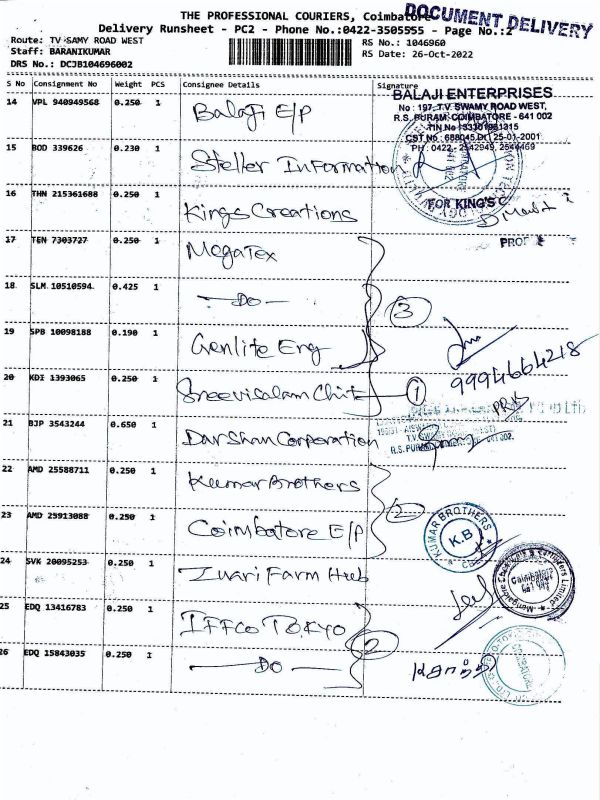 THE PROFESSIONAL COURIERS, Coimbatore
DOCUMENT DELIVERY
Delivery Runsheet - PC2 - Phone No.:0422-3505555 - Page No.:2
Route: TV SAMY ROAD WEST
Staff: BARANIKUMAR
DRS No.: DCJB104696002
RS No.: 1046960
RS Date: 26-Oct-2022
S No Consignment No Weight PCS Consignee Details Signature
BALAJI ENTERPRISES
No : 197, T.V. SWAMY ROAD WEST,
R.S. PURAM, COIMBATORE - 641 002
14 VPL 940949568 0.250 1 Balaji E/P
15 BOD 339626 0.230 1 Steller Information
16 THN 215361688 0.250 1 Kings Creations
FOR KING'S C
17 TEN 7303727 0.250 1 MegaTex
18 SLM 10510594 0.425 1 — Do —
3
19 SPB 10098188 0.190 1 Genlite Eng
9994664218
20 KDI 1393065 0.250 1 Sreevisalam Chit
1
21 BJP 3543244 0.650 1 Darshan Corporation
22 AMD 25588711 0.250 1 Kumar Brothers
2
23 AMD 25913088 0.250 1 Coimbatore E/P
KUMAR BROTHERS
K.B
24 SVK 20095253 0.250 1 Zuari Farm Hub
Coimbatore
25 EDQ 13416783 0.250 1 IFFCO TOKYO
2
26 EDQ 15843035 0.250 1 — Do —